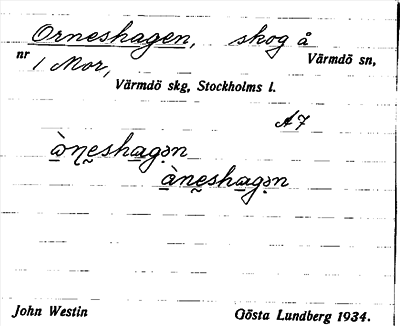 Orneshagen, skog å
nr 1 Mor, Värmdö sn,
Värmdö skg, Stockholms l.
A7
John Westin Gösta Lundberg 1934.